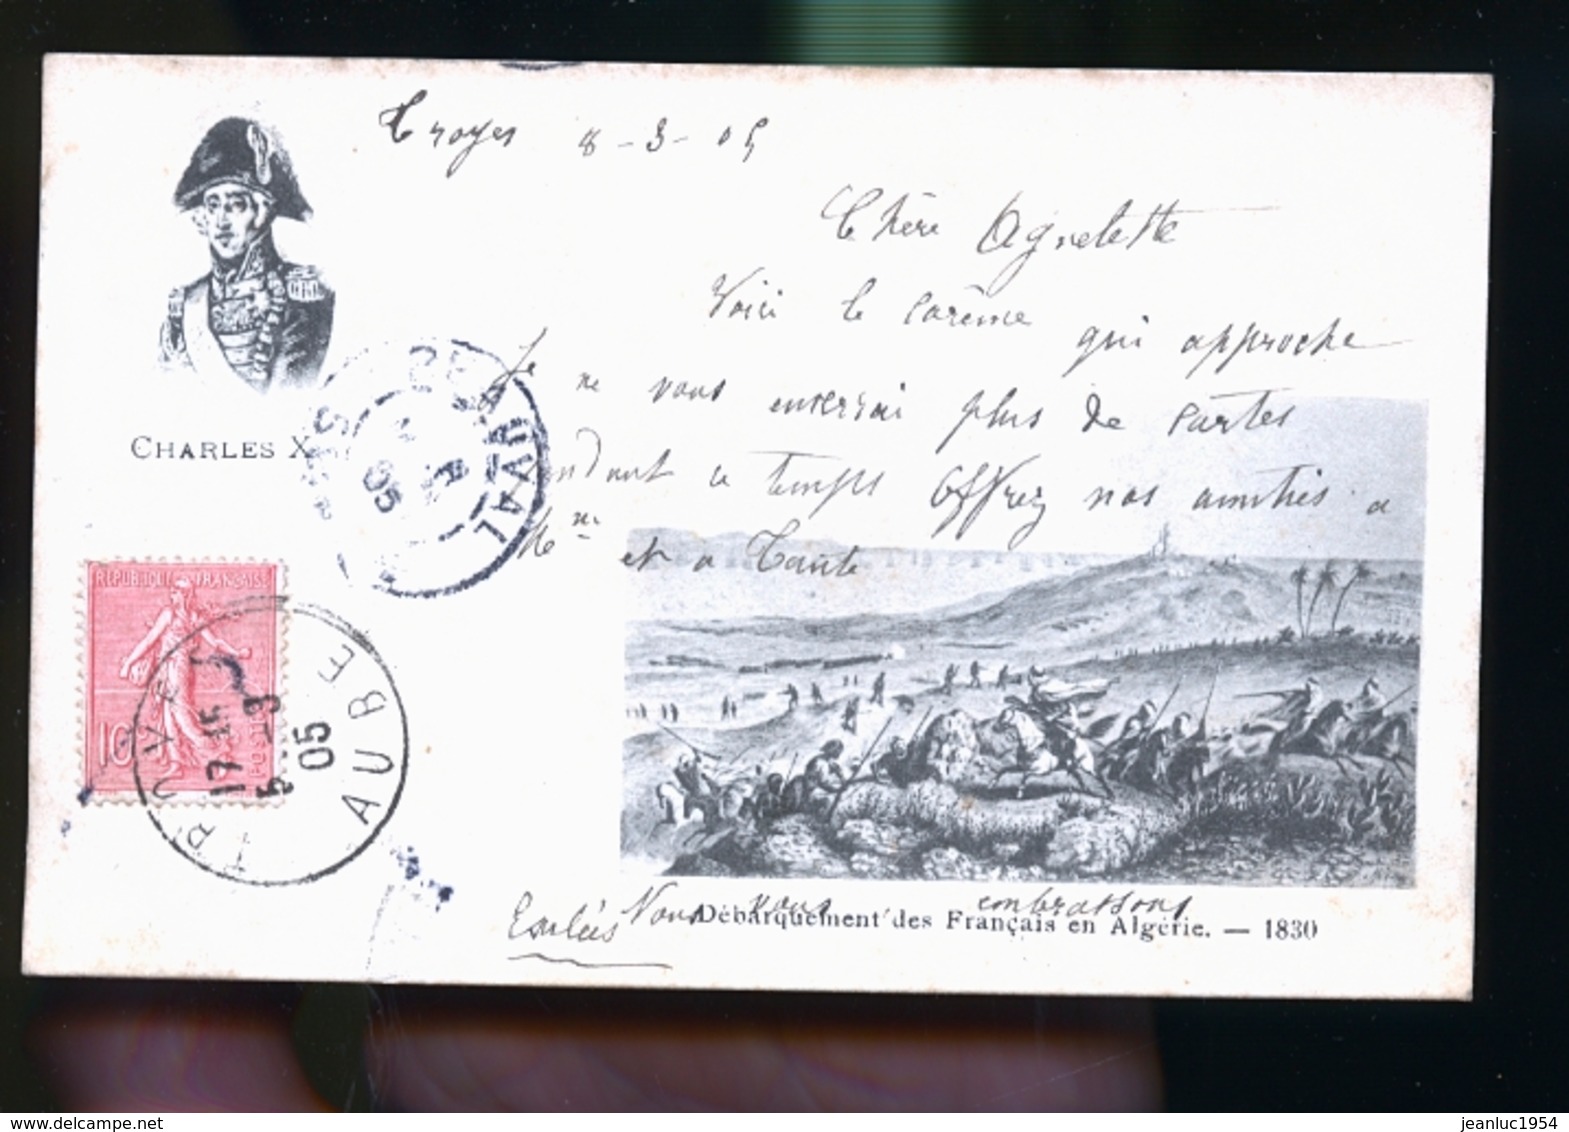 Troyes 8-3-05
Chère Agnelette
Voici le carême qui approche
Je ne vous enverrai plus de cartes
pendant ce temps Offrez nos amitiés a
Mme et a Tante
Nous vous embrassons
CHARLES X
RÉPUBLIQUE FRANÇAISE
10
POSTES
TROYES
17 45
5 -3
05
AUBE
05
Débarquement des Français en Algérie. — 1830
jeanluc1954